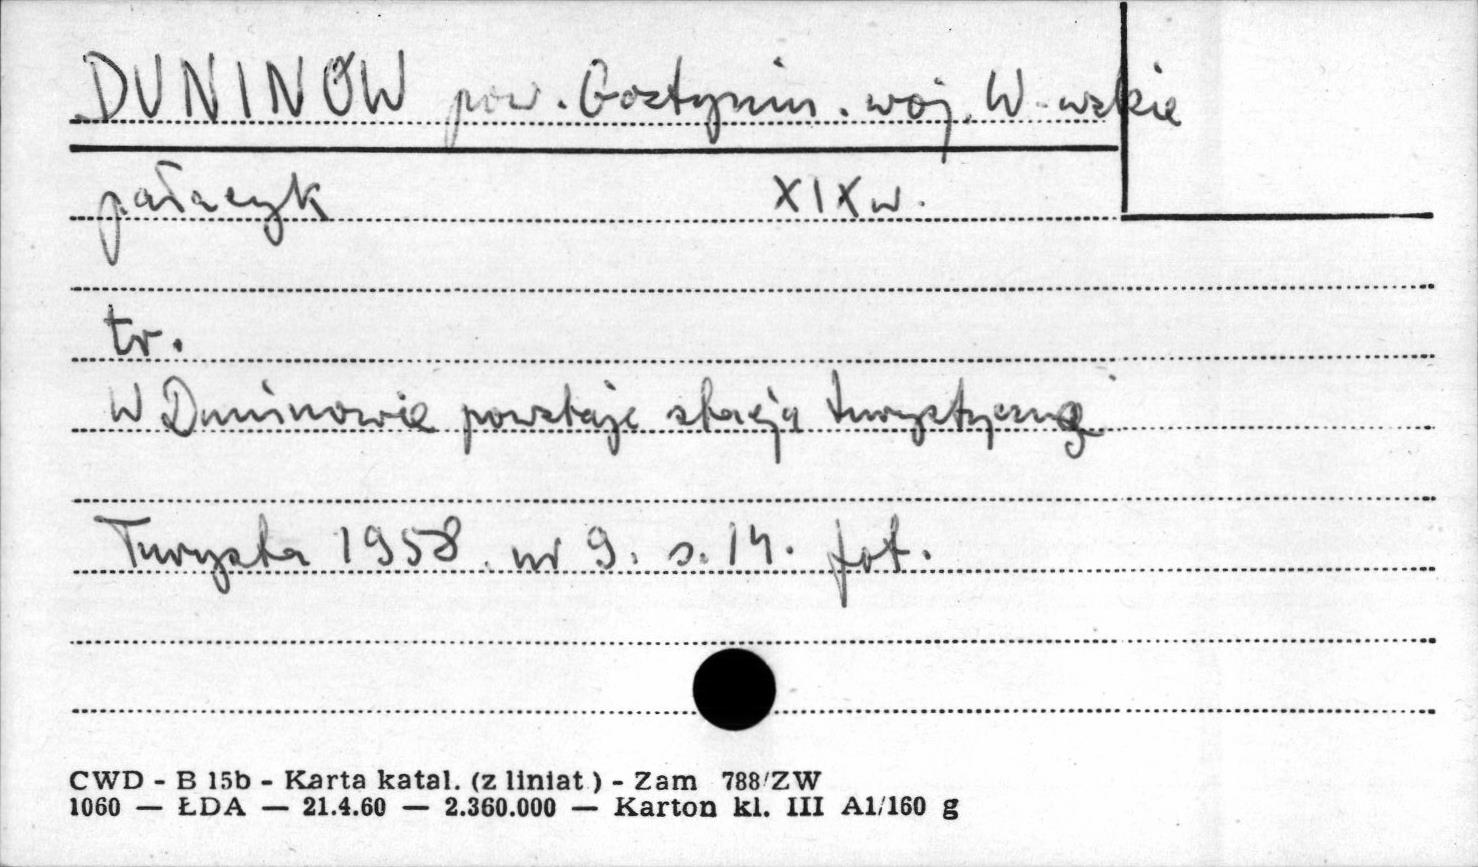 DUNINÓW pow. Gostynin. woj. W-wskie
pałacyk XIX w.
tr.
W Duninowie powstaje stacja turystyczna
Turysta 1958. nr 9. s. 14. fot.
CWD - B 15b - Karta katal. (z liniat.) - Zam 788/ZW
1060 — ŁDA — 21.4.60 — 2.360.000 — Karton kl. III A1/160 g